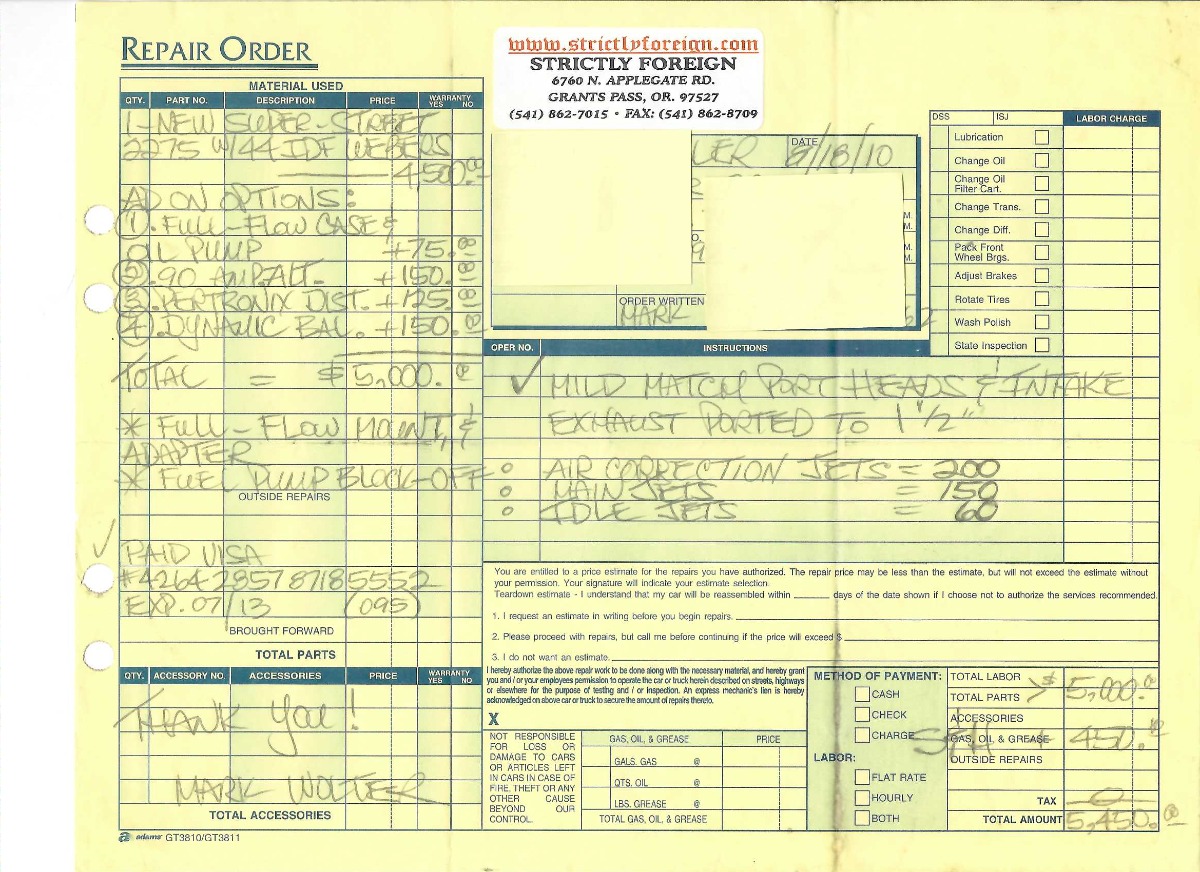 REPAIR ORDER
www.strictlyforeign.com
STRICTLY FOREIGN
6760 N. APPLEGATE RD.
GRANTS PASS, OR. 97527
(541) 862-7015 • FAX: (541) 862-8709
MATERIAL USED
QTY. PART NO. DESCRIPTION PRICE WARRANTY YES NO
1-NEW SUPER-STREET
2275 W/44 IDF WEBERS
4,500.00
AD ON OPTIONS:
1. FULL-FLOW CASE &
OIL PUMP +75.00
2. 90 AMP ALT. +150.00
3. PERTRONIX DIST. +125.00
4. DYNAMIC BAL. +150.00
TOTAL = $5,000.00
* FULL-FLOW MOUNT, &
ADAPTER
* FUEL PUMP BLOCK-OFF
OUTSIDE REPAIRS
PAID VISA
[card number omitted]
[expiration and security code omitted]
BROUGHT FORWARD
TOTAL PARTS
QTY. ACCESSORY NO. ACCESSORIES PRICE WARRANTY YES NO
THANK YOU!
MARK WOLTER
TOTAL ACCESSORIES
adams GT3810/GT3811
LER DATE 8/18/10
ORDER WRITTEN
MARK
DSS ISJ LABOR CHARGE
Lubrication
Change Oil
Change Oil
Filter Cart.
Change Trans.
Change Diff.
Pack Front
Wheel Brgs.
Adjust Brakes
Rotate Tires
Wash Polish
State Inspection
OPER NO. INSTRUCTIONS
✓ MILD MATCH PORT HEADS & INTAKE
EXHAUST PORTED TO 1 1/2"
AIR CORRECTION JETS = 200
MAIN JETS = 150
IDLE JETS = 60
You are entitled to a price estimate for the repairs you have authorized. The repair price may be less than the estimate, but will not exceed the estimate without
your permission. Your signature will indicate your estimate selection.
Teardown estimate - I understand that my car will be reassembled within days of the date shown if I choose not to authorize the services recommended.
1. I request an estimate in writing before you begin repairs.
2. Please proceed with repairs, but call me before continuing if the price will exceed $
3. I do not want an estimate.
I hereby authorize the above repair work to be done along with the necessary material, and hereby grant
you and / or your employees permission to operate the car or truck herein described on streets, highways
or elsewhere for the purpose of testing and / or inspection. An express mechanic's lien is hereby
acknowledged on above car or truck to secure the amount of repairs thereto.
X
NOT RESPONSIBLE
FOR LOSS OR
DAMAGE TO CARS
OR ARTICLES LEFT
IN CARS IN CASE OF
FIRE, THEFT OR ANY
OTHER CAUSE
BEYOND OUR
CONTROL.
GAS, OIL, & GREASE PRICE
GALS. GAS @
QTS. OIL @
LBS. GREASE @
TOTAL GAS, OIL, & GREASE
METHOD OF PAYMENT:
CASH
CHECK
CHARGE
LABOR:
FLAT RATE
HOURLY
BOTH
TOTAL LABOR
TOTAL PARTS > $5,000.00
ACCESSORIES
GAS, OIL, & GREASE S/H + 450.00
OUTSIDE REPAIRS
TAX 0
TOTAL AMOUNT 5,450.00